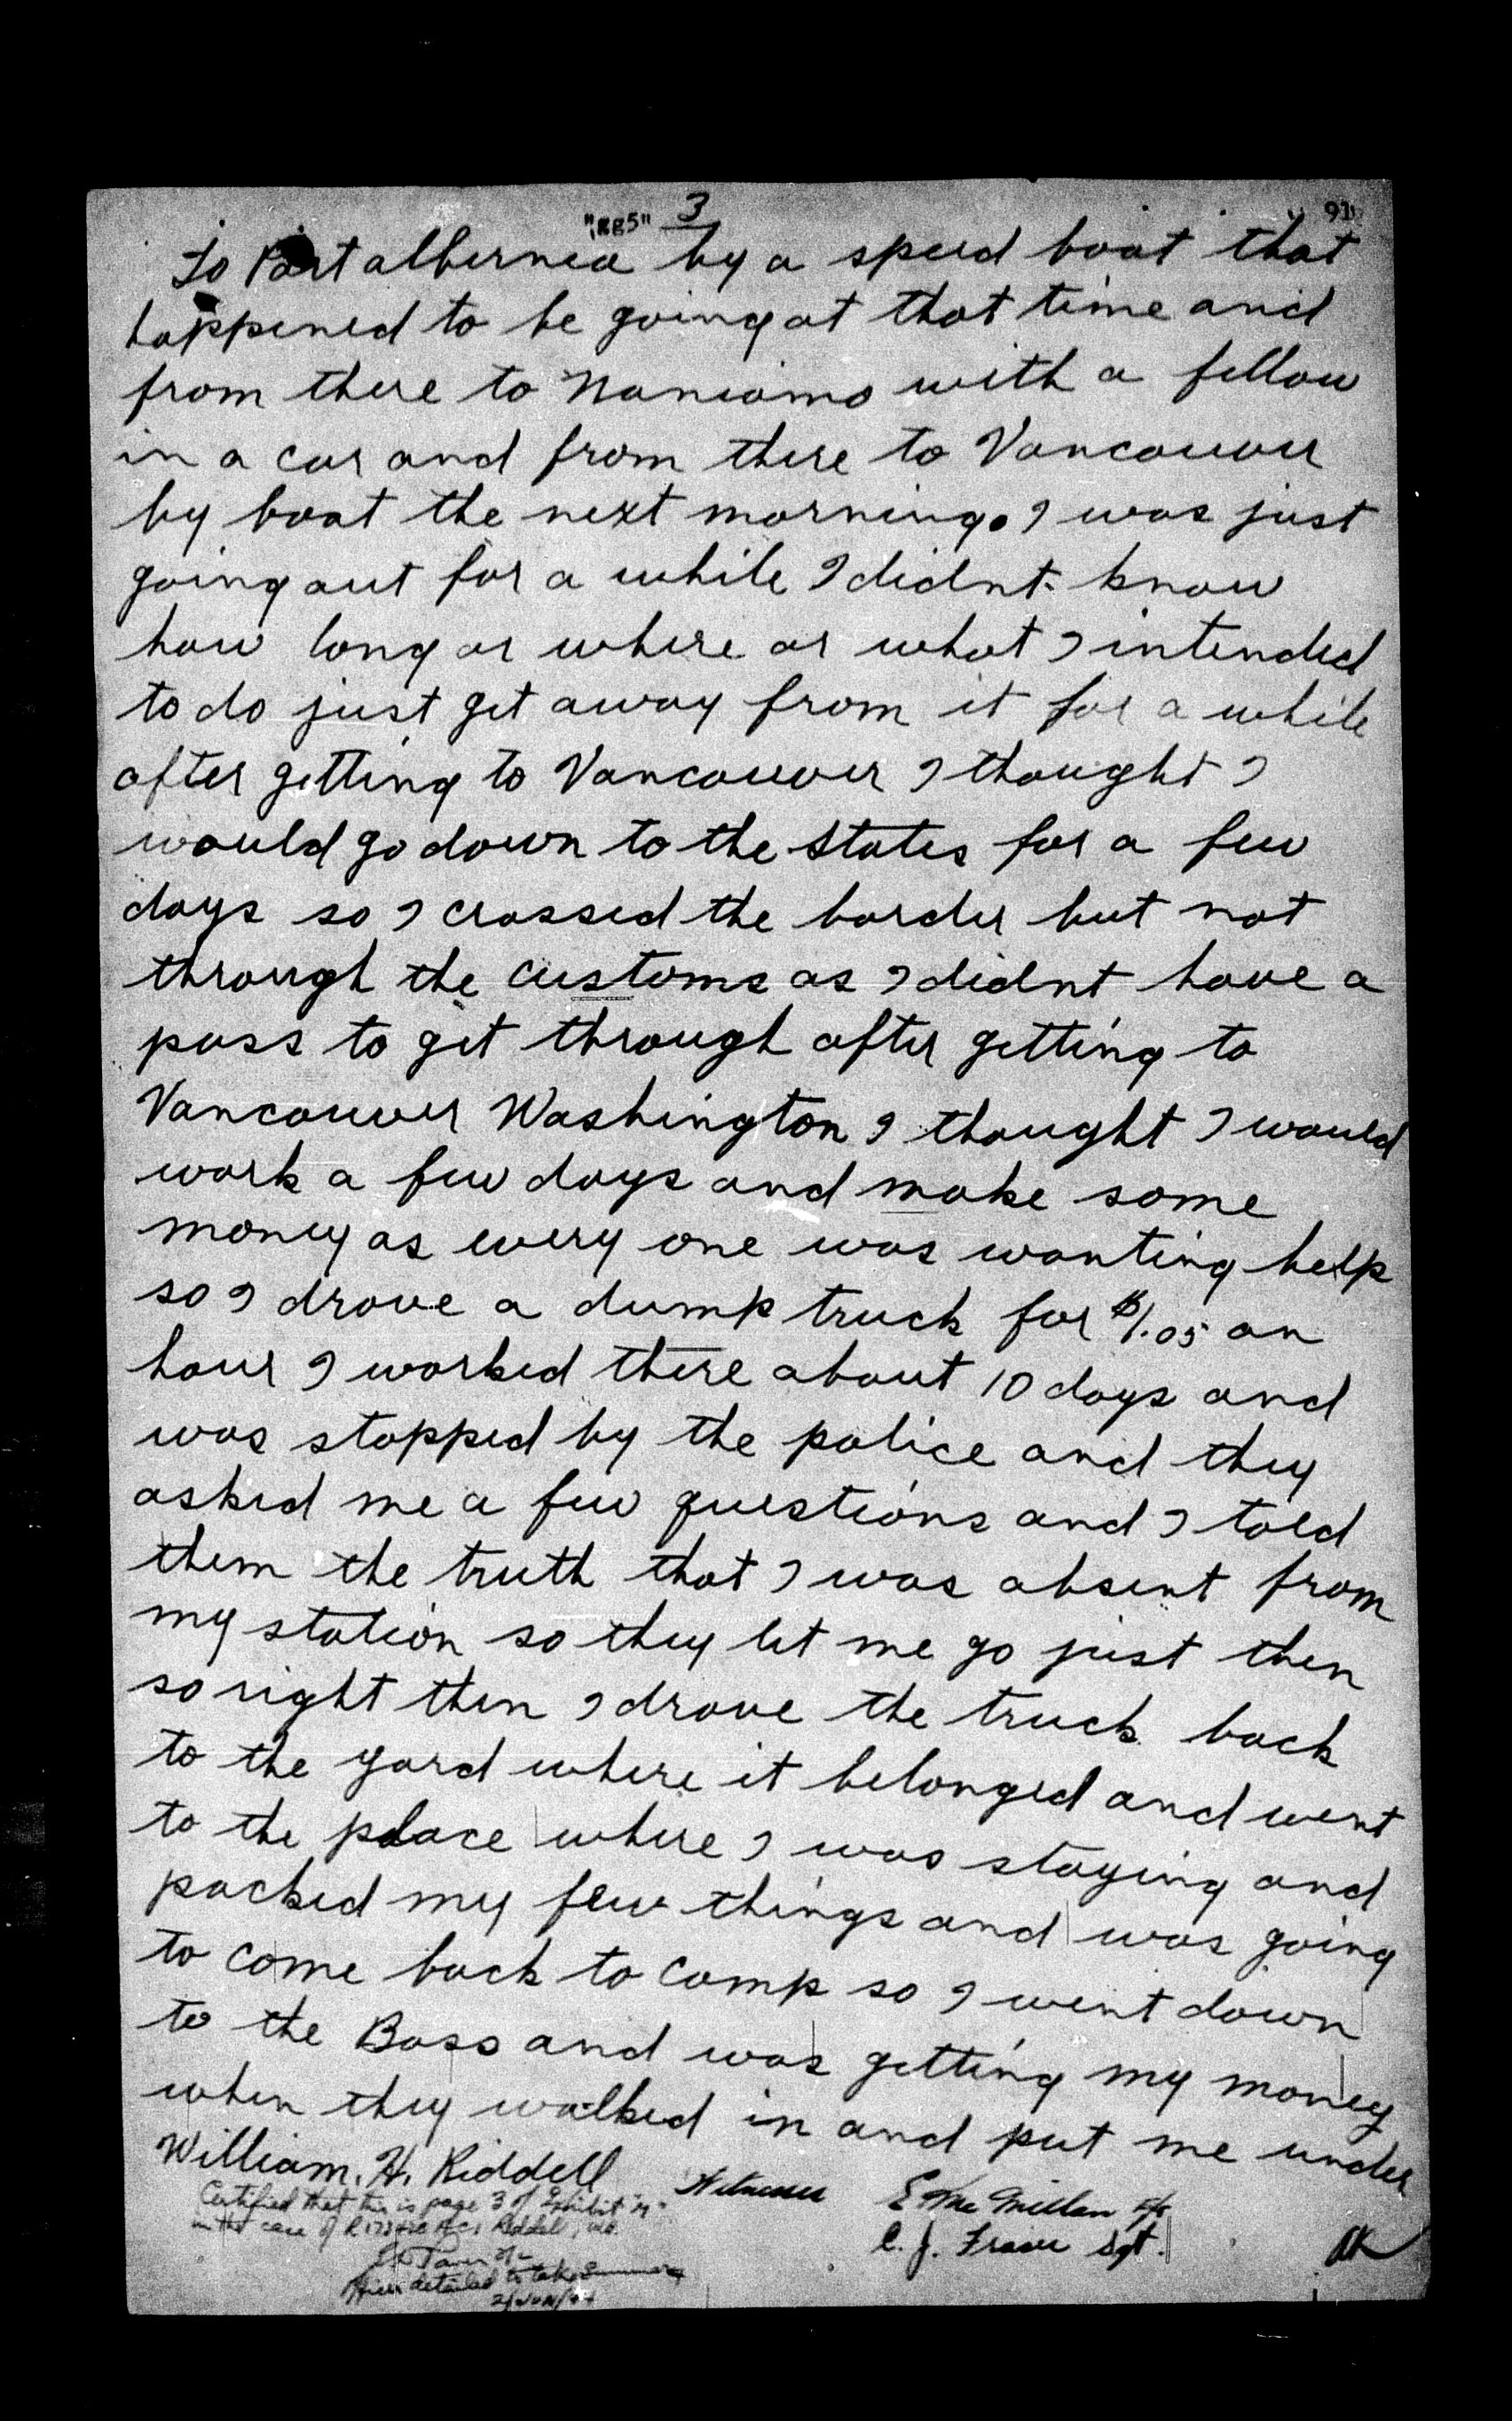 "gg5" 3 91
to Port albernea by a speed boat that
happened to be going at that time and
from there to Naniamo with a fellow
in a car and from there to Vancouver
by boat the next morning. I was just
going out for a while I didnt know
how long or where or what I intended
to do just get away from it for a while
after getting to Vancouver I thought I
would go down to the States for a few
days so I crossed the border but not
through the customs as I didnt have a
pass to get through after getting to
Vancouver Washington I thought I would
work a few days and make some
money as every one was wanting help
so I drove a dump truck for $1.05 an
hour I worked there about 10 days and
was stopped by the police and they
asked me a few questions and I told
them the truth that I was absent from
my station so they let me go just then
so right then I drove the truck back
to the yard where it belonged and went
to the place where I was staying and
packed my few things and was going
to come back to camp so I went down
to the Boss and was getting my money
when they walked in and put me under
William. H. Riddell Witnesses E McMillan
C. J. Fraser Sgt.
Certified that this is page 3 of Exhibit
in the case of Riddell, W.H.
detailed to take Summary